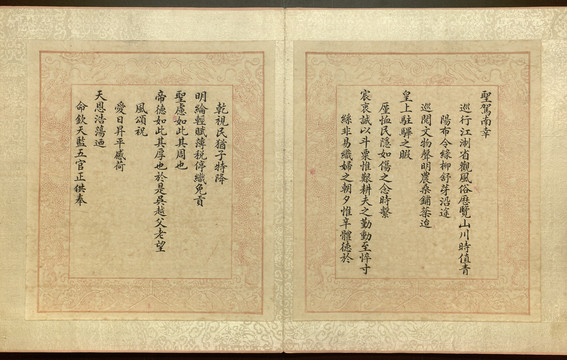 聖駕南幸
巡行江淛省觀風俗歷覽山川時值青
陽布令綠柳舒芽沿途
巡閱文物聲明農桑鋪菜迨
皇上駐驆之暇
厪恤民隱如傷之念時繫
宸衷誠以斗粟惟艱耕夫之勤動至悴寸
絲非易織婦之朝夕惟辛體德於
乾視民猶子特降
明綸輕賦薄稅停織免貢
聖慮如此其周也
帝德如此其厚也於是吳越父老望
風頌祝
愛日昇平感荷
天恩浩蕩迺
命欽天藍五官正供奉